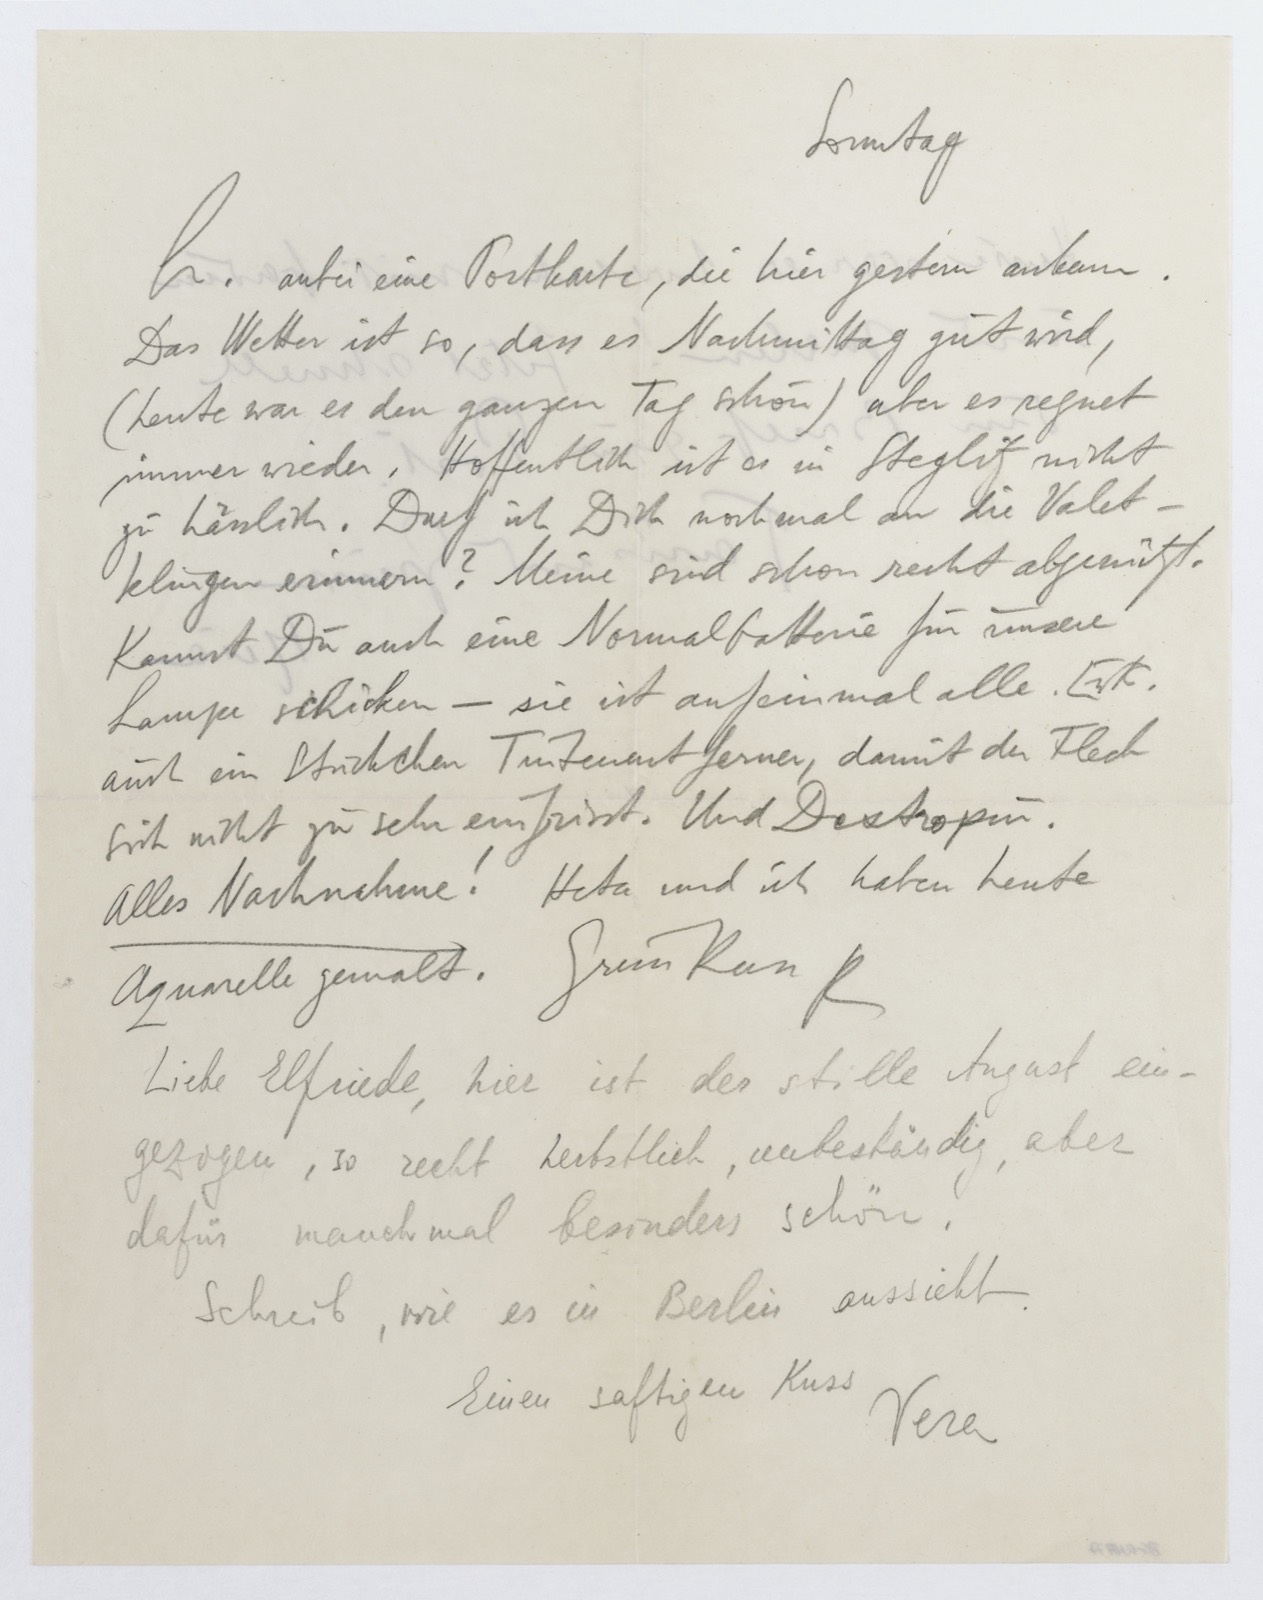 Sonntag
L. anbei eine Postkarte, die hier gestern ankam.
Das Wetter ist so, dass es Nachmittag gut wird,
(heute war es den ganzen Tag schön) aber es regnet
immer wieder. Hoffentlich ist es in Steglitz nicht
zu hässlich. Darf ich Dich nochmal an die Valet-
klingen erinnern? Meine sind schon recht abgenützt.
Kannst Du auch eine Normalbatterie für unsere
Lampe schicken — sie ist aufeinmal alle.
auch ein Stückchen Tintenentferner, damit der Fleck
sich nicht zu sehr einfrisst. Und Dextropur.
Alles Nachnahme! Heta und ich haben heute
Aquarelle gemalt. Gruss Kuss R
Liebe Elfriede, hier ist der stille August ein-
gezogen, so recht herbstlich, unbeständig, aber
dafür manchmal besonders schön.
Schreib, wie es in Berlin aussieht.
Einen saftigen Kuss
Vera